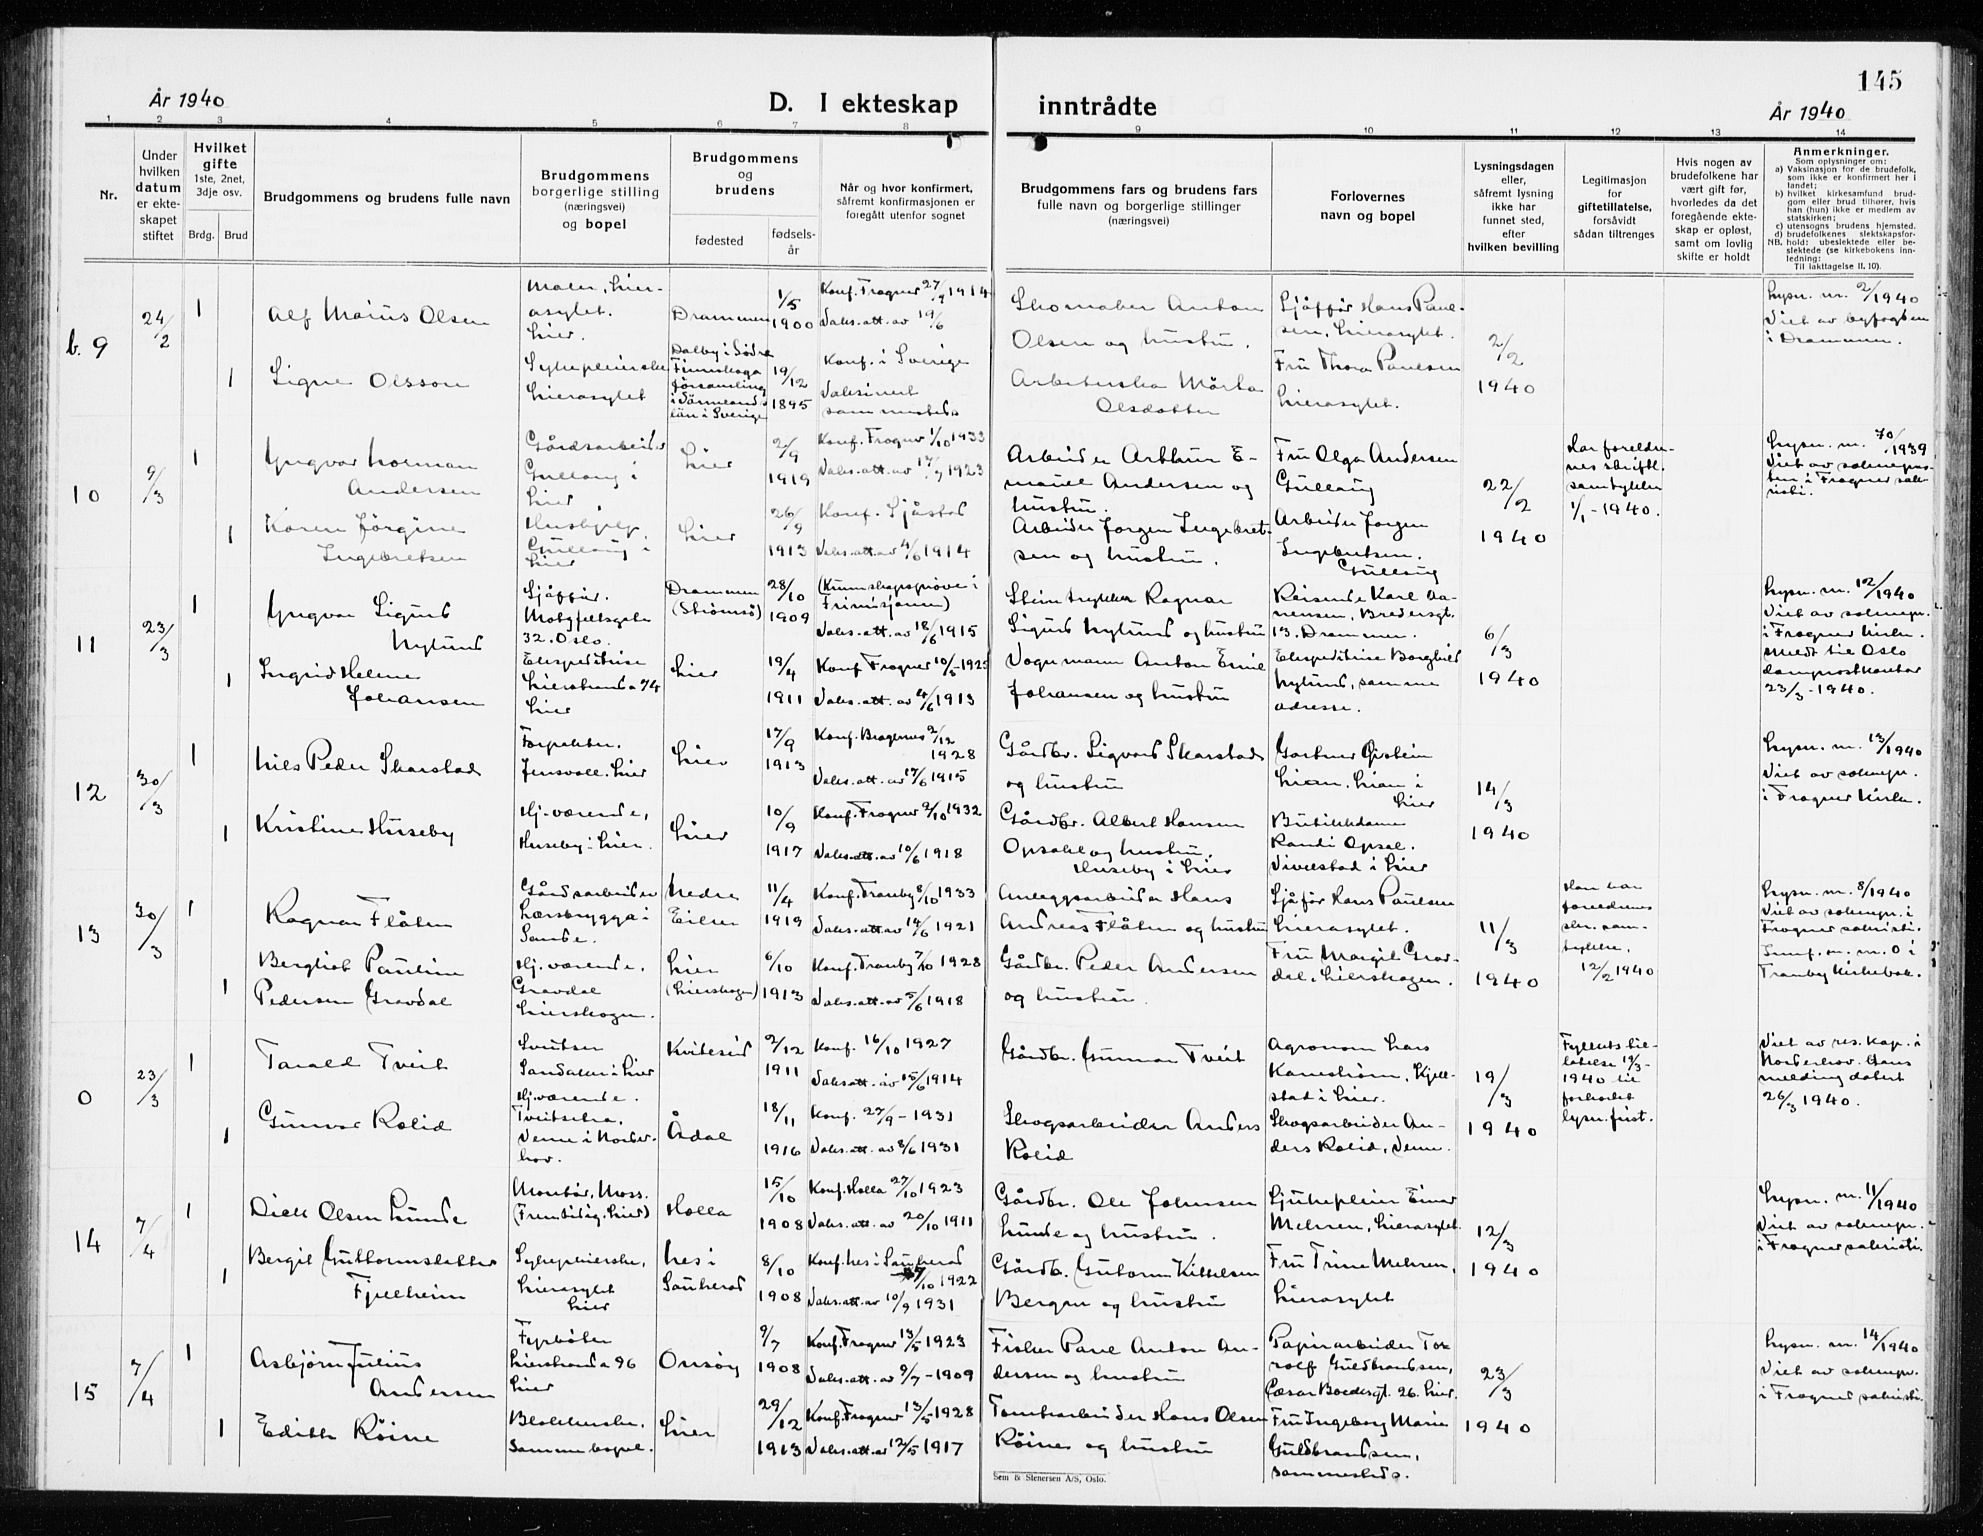 145
År 1940
D. I ekteskap inntrådte
År 1940
1 2 3 4 5 6 7 8 9 10 11 12 13 14
Nr.
Under
hvilken
datum
er ekte-
skapet
stiftet
Hvilket
gifte
1ste, 2net,
3dje osv.
Brdg. Brud
Brudgommens og brudens fulle navn
Brudgommens
borgerlige stilling
(næringsvei)
og bopel
Brudgommens
og
brudens
fødested
fødsels-
år
Når og hvor konfirmert,
såfremt konfirmasjonen er
foregått utenfor sognet
Brudgommens fars og brudens fars
fulle navn og borgerlige stillinger
(næringsvei)
Forlovernes
navn og bopel
Lysningsdagen
eller,
såfremt lysning
ikke har
funnet sted,
efter
hvilken bevilling
Legitimasjon
for
giftetillatelse,
forsåvidt
sådan tiltrenges
Hvis nogen av
brudefolkene har
vært gift før,
hvorledes da det
foregående ekte-
skap er opløst,
samt om lovlig
skifte er holdt
Anmerkninger.
Som oplysninger om:
a) Vaksinasjon for de brudefolk,
som ikke er konfirmert her i
landet;
b) hvilket kirkesamfund brud-
gom eller brud tilhører, hvis
han (hun) ikke er medlem av
statskirken;
c) utensogns brudens hjemsted.
d) brudefolkenes slektskapsfor-
NB. hold: ubeslektede eller be-
slektede (se kirkebokens inn-
ledning:
Til iakttagelse II. 10).
b. 9
24/2
1
Alf Marius Olsen
Maler, Lier-
asylet.
Lier.
Drammen
1/5
1900
Konf. Frogner 27/9 1914
Vaks. att. av 19/6
Skomaker Anton
Olsen og hustru.
Sjåffør Hans Paul-
sen, Lierasylet.
2/2
1940
Lysn. nr. 2/1940
Viet av byfogden
i Drammen.
1
Signe Olsson
Sykepleierske
Lierasylet
Dalby i Södra
Finnskoga
församling
i Värmlands
län i Sverige
19/12
1895
Konf. i Sverige
Vaksinert
sammesteds
Arbeterska Märta
Olsdotter
Fru Thora Paulsen
Lierasylet.
10
9/3
1
Yngvar Norman
Andersen
Gårdsarbeider
Gullaug i
Lier
Lier
2/9
1919
Konf. Frogner 1/10 1933
Vaks. att. av 17/9 1923
Arbeider Arthur E-
manuel Andersen og
hustru.
Fru Olga Andersen
Gullaug
22/2
1940
Har foreldre-
nes skriftl.
samtykke
1/1 - 1940.
Lysn. nr. 70/1939
Viet av sogneprest-
en i Frogner sakr-
isti.
1
Karen Jörgine
Ingebretsen
Hushjelp,
Gullaug i
Lier
Lier
26/9
1913
Konf. Sjåstad
Vaks. att. av 4/6 1914
Arbeider Jorgen Ingebret-
sen og hustru.
Arbeider Jorgen
Ingebretsen.
Gullaug
11
23/3
1
Yngvar Sigurd
Nylund
Sjåffør.
Motzfeltsgate
32. Oslo.
Drammen
(Strømsø)
28/10
1909
(Kunnskapsprøve i
Frimisjonen)
Vaks. att. av 18/6 1915
Steintrykker Ragnar
Sigurd Nylund og hustru
Reisende Karl Aa-
nensen, Bredersgt.
13. Drammen.
6/3
1940
Lysn. nr. 12/1940
Viet av sognepr.
i Frogner kirke.
Meldt til Oslo
dompostkontor
23/3 - 1940.
1
Ingrid Helene
Johansen
Ekspeditrise
Lierstranda 74
Lier
Lier
19/4
1911
Konf. Frogner 10/5 - 1925
Vaks. att. av 4/6 1913
Vognmann Anton Emil
Johansen og hustru
Ekspeditrise Borghild
Nylund, samme
adresse.
12
30/3
1
Nils Peder Skarstad
Forpakter.
Jensvoll. Lier
Lier
17/9
1913
Konf. Bragernes 2/12
1928
Vaks. att. av 17/6 1915
Gårdbr. Sigvard Skarstad
og hustru
Gartner Øistein
Lian. Lian i
Lier
14/3
1940
Lysn. nr. 13/1940
Viet av sognepr.
i Frogner kirke.
1
Kristine Huseby
Hj. værende,
Huseby i Lier.
Lier
10/9
1917
Konf. Frogner 2/10 1932
Vaks. att. av 10/6 1918
Gårdbr. Albert Hansen
Opsahl og hustru.
Huseby i Lier
Butikkdame
Randi Opsal.
Vivelstad i Lier
13
30/3
1
Ragnar Flåten
Gårdsarbeider
Lersbrygga i
Sande.
Nedre
Eiker
11/4
1919
Konf. Tranby 8/10 1933
Vaks. att. av 14/6 1921
Anleggsarbeider Hans
Andreas Flåten og hustru
Sjåfør Hans Paulsen
Lierasylet.
11/3
1940
Han har
foreldrenes
skr. sam-
tykke,
12/2 1940
Lysn. nr. 8/1940
Viet av sognepr. i
Frogner sakristi.
Innf. m. nr. 0 i
Tranby kirkebok.
1
Bergliot Pauline
Pedersen Gravdal
Hj. værende.
Gravdal
Lierskogen.
Lier
(Lierskogen)
6/10
1913
Konf. Tranby 7/10 1928
Vaks. att. av 5/6 1918
Gårdbr. Peder Andersen
og hustru.
Fru Margit Grav-
dal, Lierskogen.
0
23/3
1
Tarald Tveit
Sveitser
Landaker i Lier
Kviteseid
2/12
1911
Konf. 16/10 1927
Vaks att. av 15/6 1914
Gårdbr. Gunnar Tveit
Agronom Lars
Kanestrøm, Kjell-
stad i Lier.
19/3
1940
Fylkets til-
latelse 19/3 -
1940 til
forkortet
lysn. frist.
Viet av res. kap. i
Norderhov. Hans
melding datert
26/3 1940.
1
Gunvor Rolid
Hj. værende.
Tveitselia,
Veme i Norder-
hov.
Ådal
18/11
1916
Konf. 27/9 - 1931
Vaks. att. av 8/6 1931
Skogsarbeider Anders
Rolid
Skogsarbeider An-
ders Rolid, Veme.
14
7/4
1
Dick Olsen Lunde
Montør, Moss.
(Fremtidig. Lier)
Holla
15/10
1908
Konf. Holla 27/10 1923
Vaks. att. av 20/10 1911
Gårdbr. Ole Johnsen
Lunde og hustru.
Sjukepleier Einar
Mehren, Lierasylet.
12/3
1940
Lysn. nr. 11/1940
Viet av sognepr.
i Frogner sakristi.
1
Bergit Guttormsdatter
Fjellheim
Sykepleierske,
Lierasylet
Lier
Nes i
Sauherad
8/10
1908
Konf. Nes i Sauherad
/10 1922
Vaks. att. av 10/9 1931
Gårdbr. Gutorm Kittelsen
Bergan og hustru
Fru Trine Mehren,
Lierasylet
15
7/4
1
Asbjørn Julius
Andersen
Fyrbøter
Lierstranda 96
Lier
Onsøy
9/7
1908
Konf. Frogner 13/5 1923
Vaks. att. av 9/7 - 1909
Fisker Paul Anton An-
dersen og hustru
Papirarbeider To-
rolf Guldbrandsen,
Cæsar Boedesgt. 26. Lier.
23/3
1940
Lysn. nr. 14/1940
Viet av sognepr.
i Frogner sakristi.
1
Edith Röine
Blokkerske.
Samme bopel.
Lier
29/12
1913
Konf. Frogner 13/5 - 1928
Vaks. att. av 12/5 1917
Tomtearbeider Hans Olsen
Röine og hustru
Fru Ingeborg Marie
Guldbrandsen,
sammesteds.
Sem & Stenersen A/S, Oslo.